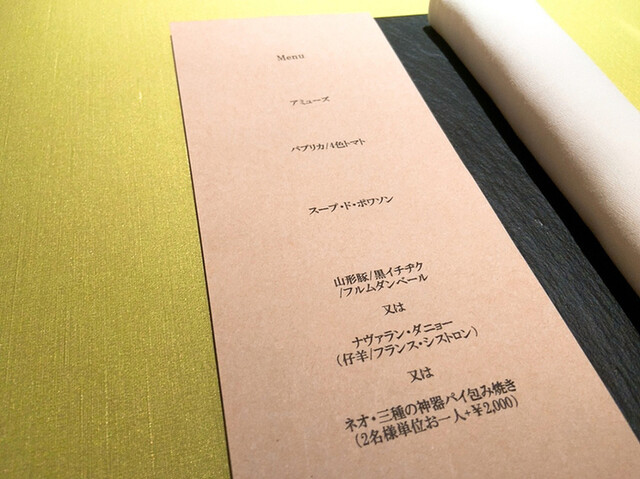 Menu
アミューズ
パプリカ/4色トマト
スープ・ド・ポワソン
山形豚/黒イチヂク
/フルムダンベール
又は
ナヴァラン・ダニョー
(仔羊/フランス・シストロン)
又は
ネオ・三種の神器パイ包み焼き
(2名様単位お一人+¥2,000)